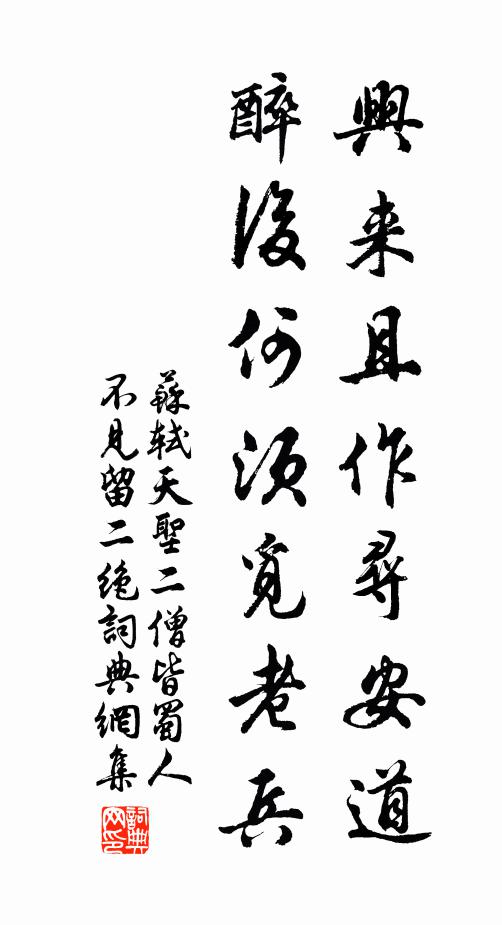 興来且作尋安道
醉後何須覓老兵
蘇軾天聖二僧皆蜀人
不見留二絶詞典網集
詞典
网印